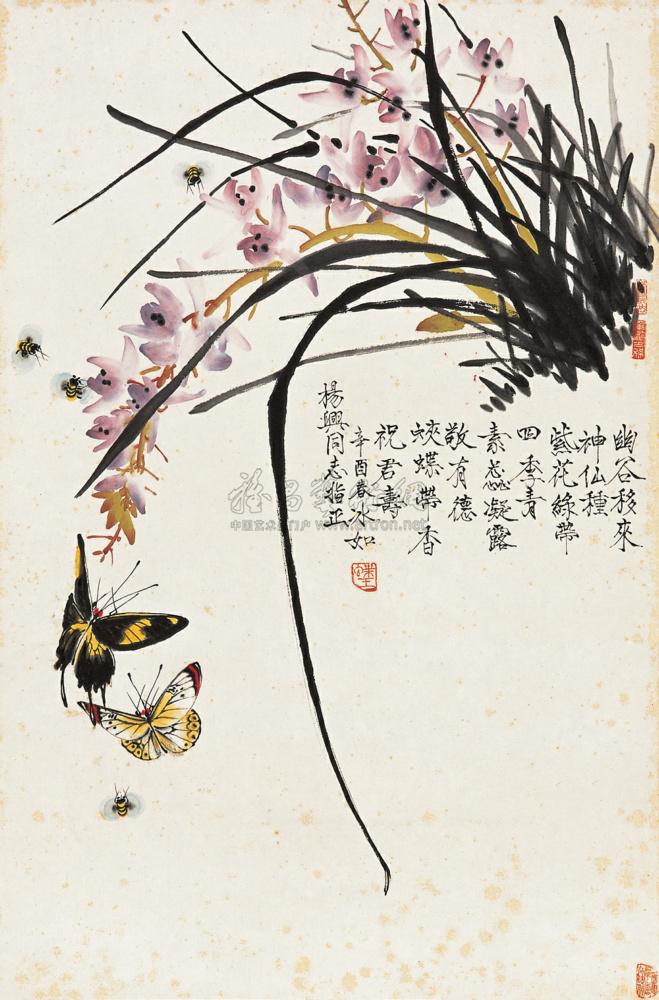 幽谷移來
神仙種
紫花綠帶
四季青
素蕊凝露
敬有德
蛺蝶帶香
祝君壽
辛酉春冰如
楊興同志指正
中国艺术品门户 www.artron.net